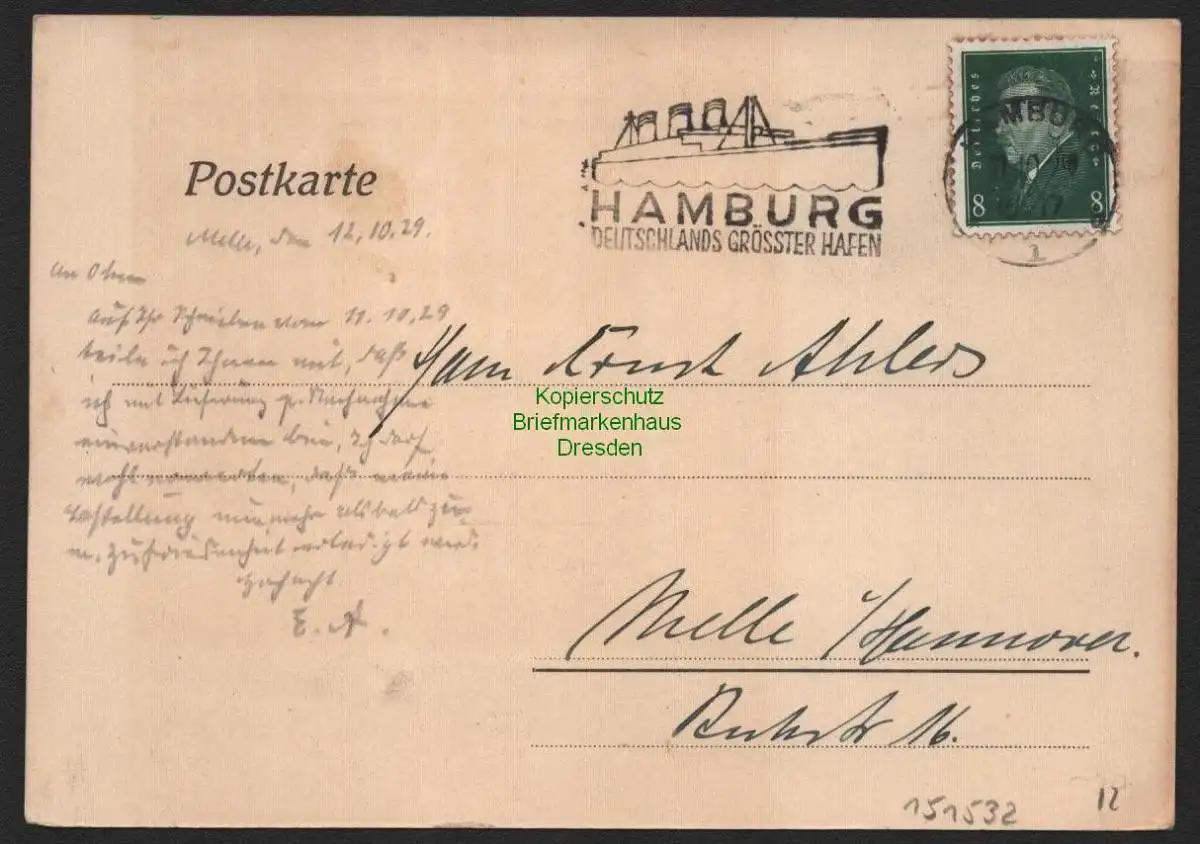 Postkarte
HAMBURG
DEUTSCHLANDS GRÖSSTER HAFEN
Deutsches Reich
8 8
HAMBURG
1
Melle, den 12.10.29.
An Oben
Auf Ihr Schreiben vom 11.10.29
teile ich Ihnen mit, daß
ich mit Lieferung p. Nachnahme
einverstanden bin, Ich darf
wohl erwarten, daß meine
Bestellung nunmehr alsbald zu
m. Zufriedenheit erledigt wird.
Hochacht.
E. A.
Herrn Ernst Ahlers
Kopierschutz
Briefmarkenhaus
Dresden
Melle / Hannover.
16.
151532
12